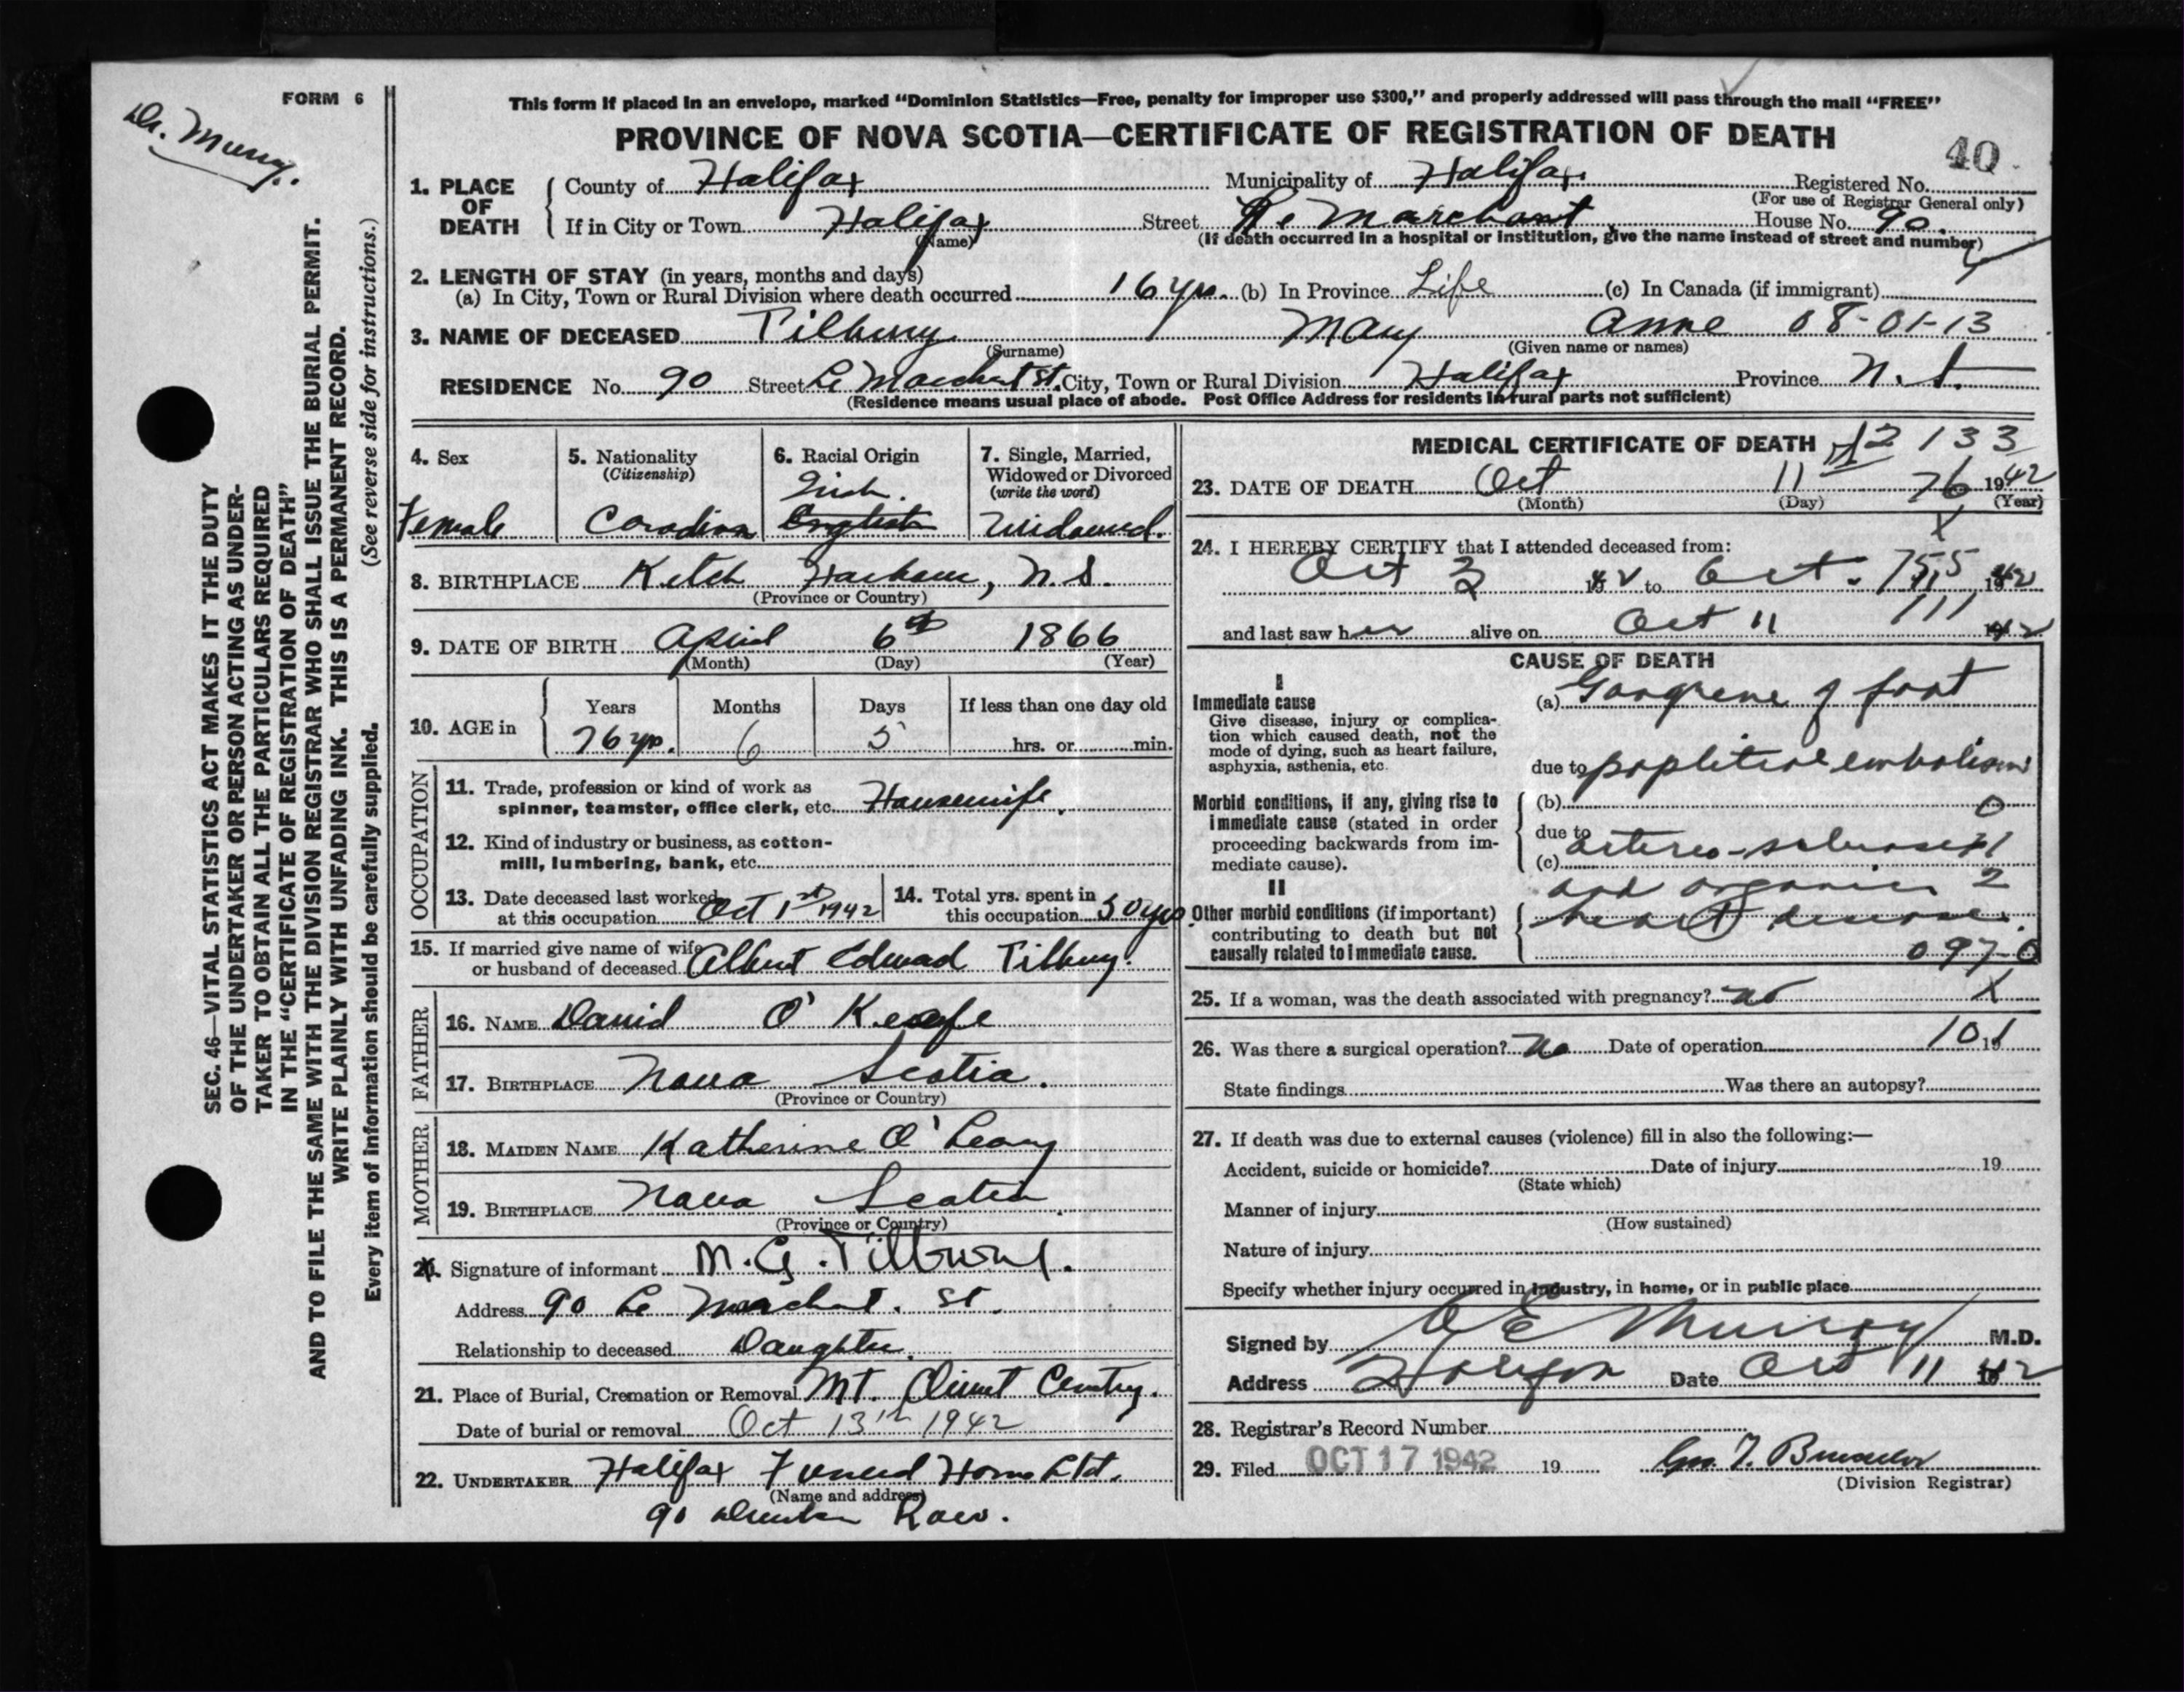 FORM 6
Dr. Murray.
This form if placed in an envelope, marked "Dominion Statistics—Free, penalty for improper use $300," and properly addressed will pass through the mail "FREE"
PROVINCE OF NOVA SCOTIA—CERTIFICATE OF REGISTRATION OF DEATH
40
1. PLACE OF DEATH County of Halifax Municipality of Halifax Registered No.
(For use of Registrar General only)
If in City or Town Halifax Street Le Marchant House No. 90
(Name) (If death occurred in a hospital or institution, give the name instead of street and number)
2. LENGTH OF STAY (in years, months and days)
(a) In City, Town or Rural Division where death occurred 16 yrs. (b) In Province Life (c) In Canada (if immigrant)
3. NAME OF DECEASED Tilbury Mary Anne 08-01-13
(Surname) (Given name or names)
RESIDENCE No. 90 Street Le Marchant St. City, Town or Rural Division Halifax Province N.S.
(Residence means usual place of abode. Post Office Address for residents in rural parts not sufficient)
4. Sex 5. Nationality (Citizenship) 6. Racial Origin 7. Single, Married, Widowed or Divorced (write the word)
Irish.
Female Canadian English Widowed.
8. BIRTHPLACE Ketch Harbour, N.S.
(Province or Country)
9. DATE OF BIRTH April 6th 1866
(Month) (Day) (Year)
10. AGE in Years Months Days If less than one day old
76 yrs. 6 5 hrs. or min.
OCCUPATION
11. Trade, profession or kind of work as
spinner, teamster, office clerk, etc. Housewife.
12. Kind of industry or business, as cotton-
mill, lumbering, bank, etc.
13. Date deceased last worked at this occupation Oct 1st 1942 14. Total yrs. spent in this occupation 50 yrs
15. If married give name of wife
or husband of deceased Albert Edward Tilbury.
FATHER
16. NAME David O'Keefe
17. BIRTHPLACE Nova Scotia.
(Province or Country)
MOTHER
18. MAIDEN NAME Katherine O'Leary
19. BIRTHPLACE Nova Scotia
(Province or Country)
20. Signature of informant M. G. Tilbury.
Address 90 Le Marchant. St.
Relationship to deceased Daughter.
21. Place of Burial, Cremation or Removal Mt. Olivet Cemtry.
Date of burial or removal Oct 13th 1942
22. UNDERTAKER Halifax Funeral Home Ltd.
(Name and address)
90 Row.
MEDICAL CERTIFICATE OF DEATH 12 133
23. DATE OF DEATH Oct 11 76 1942
(Month) (Day) (Year)
X
24. I HEREBY CERTIFY that I attended deceased from:
Oct 3 42 to Oct. 11 1942
755
and last saw her alive on Oct 11 111 42
CAUSE OF DEATH
I
Immediate cause
Give disease, injury or complica-
tion which caused death, not the
mode of dying, such as heart failure,
asphyxia, asthenia, etc.
(a) Gangrene of foot
due to popliteal embolism
Morbid conditions, if any, giving rise to
immediate cause (stated in order
proceeding backwards from im-
mediate cause).
(b) 0
due to arterio-sclerosis 1
(c)
II
and organic 2
Other morbid conditions (if important)
contributing to death but not
causally related to immediate cause.
heart disease.
097-0
25. If a woman, was the death associated with pregnancy? no X
26. Was there a surgical operation? No Date of operation 101 19
State findings Was there an autopsy?
27. If death was due to external causes (violence) fill in also the following:—
Accident, suicide or homicide? Date of injury 19
(State which)
Manner of injury
(How sustained)
Nature of injury
Specify whether injury occurred in industry, in home, or in public place
Signed by Murray M.D.
Address Halifax Date Oct 11 42
28. Registrar's Record Number
29. Filed OCT 17 1942 19
(Division Registrar)
SEC. 46—VITAL STATISTICS ACT MAKES IT THE DUTY
OF THE UNDERTAKER OR PERSON ACTING AS UNDER-
TAKER TO OBTAIN ALL THE PARTICULARS REQUIRED
IN THE "CERTIFICATE OF REGISTRATION OF DEATH"
AND TO FILE THE SAME WITH THE DIVISION REGISTRAR WHO SHALL ISSUE THE BURIAL PERMIT.
WRITE PLAINLY WITH UNFADING INK. THIS IS A PERMANENT RECORD.
Every item of information should be carefully supplied. (See reverse side for instructions.)